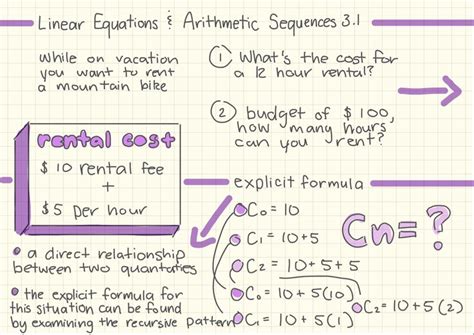 Linear Equations & Arithmetic Sequences 3.1
while on vacation
you want to rent
a mountain bike
① What's the cost for
a 12 hour rental?
② budget of $100,
how many hours
can you rent?
rental cost
$10 rental fee
+
$5 per hour
• a direct relationship
between two quantaties
• the explicit formula for
this situation can be found
by examining the recursive pattern
explicit formula
C₀ = 10
C₁ = 10 + 5
C₂ = 10 + 5 + 5
C₀ = 10 + 5(0)
C₁ = 10 + 5(1)
C₂ = 10 + 5(2)
Cn = ?